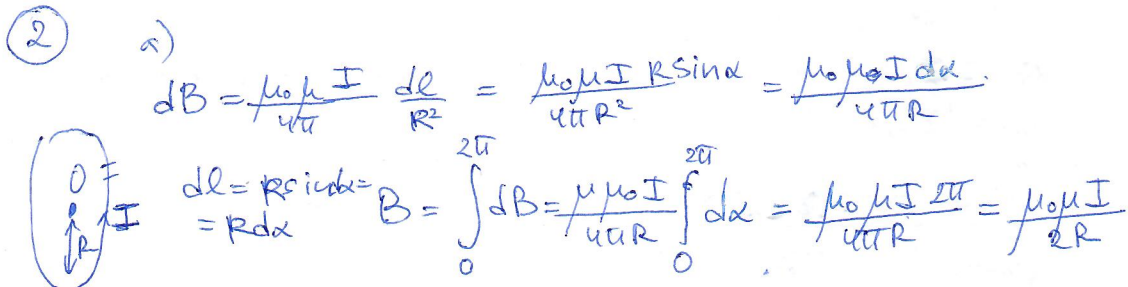 ② a)
dB = μ₀μ I / 4π dl / R² = μ₀μ I R sinα / 4πR² = μ₀μ₀ I dα / 4πR .
O I R dl = R sin dα = = R dα B = ∫₀^2π dB = μ μ₀ I / 4πR ∫₀^2π dα = μ₀ μ I 2π / 4πR = μ₀ μ I / 2R